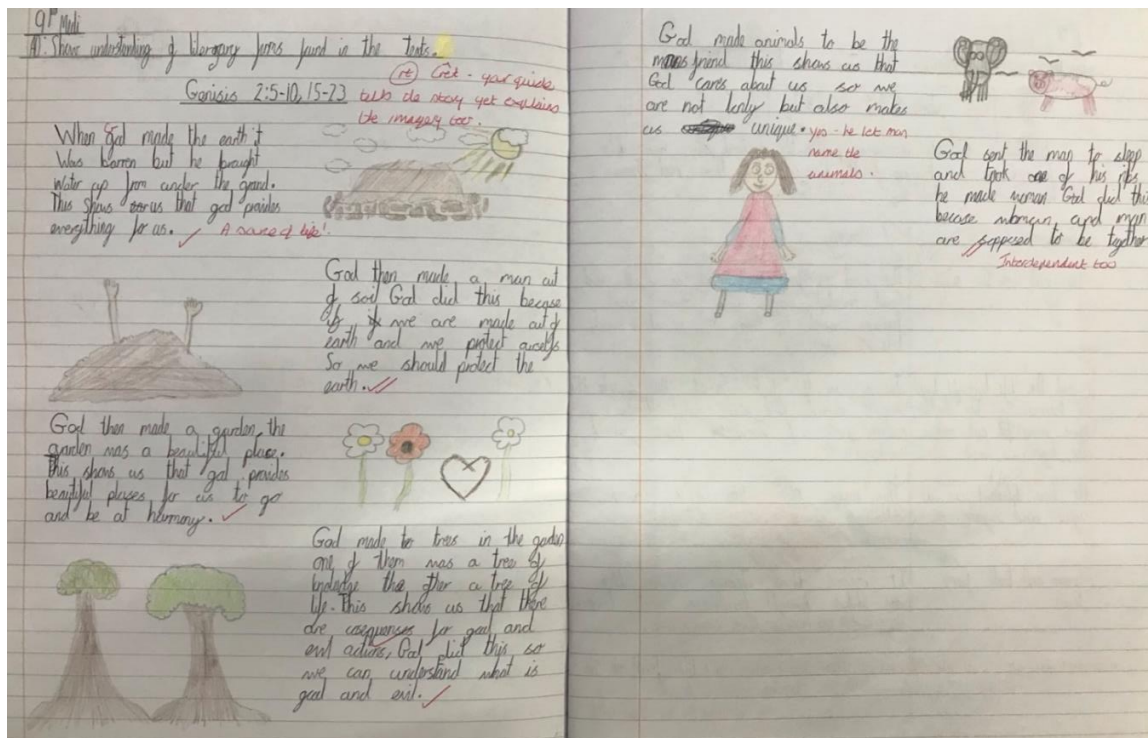 9th Medi
A1: Shows understanding of literary forms found in the texts.
Genisis 2:5-10, 15-23
Grêt - your guide
tells the story yet explains
the imagery too.
When God made the earth it
Was barren but he brought
Water up from under the grond.
This shows us that god provides
everything for us.
A source of life!
God then made a man out
of soil God did this because
if we are made out of
earth and we protect
So we should protect the
earth.
God then made a garden, the
garden was a beautiful place.
This shows us that god provides
beautiful plases for us to go
and be at harmony.
God made to trees in the garden
one of them was a tree of
the other a tree of
life. This shows us that there
are for good and
evil actions, God this so
we can understand what is
good and evil.
God made animals to be the
mans friend this shows us that
God cares about us so we
are not lonly but also makes
us unique.
yes - he let man
name the
animals.
God sent the man to sleep
and took one of his ribs
he made woman God did this
becase woman and man
are sopposed to be together
Interdependent too